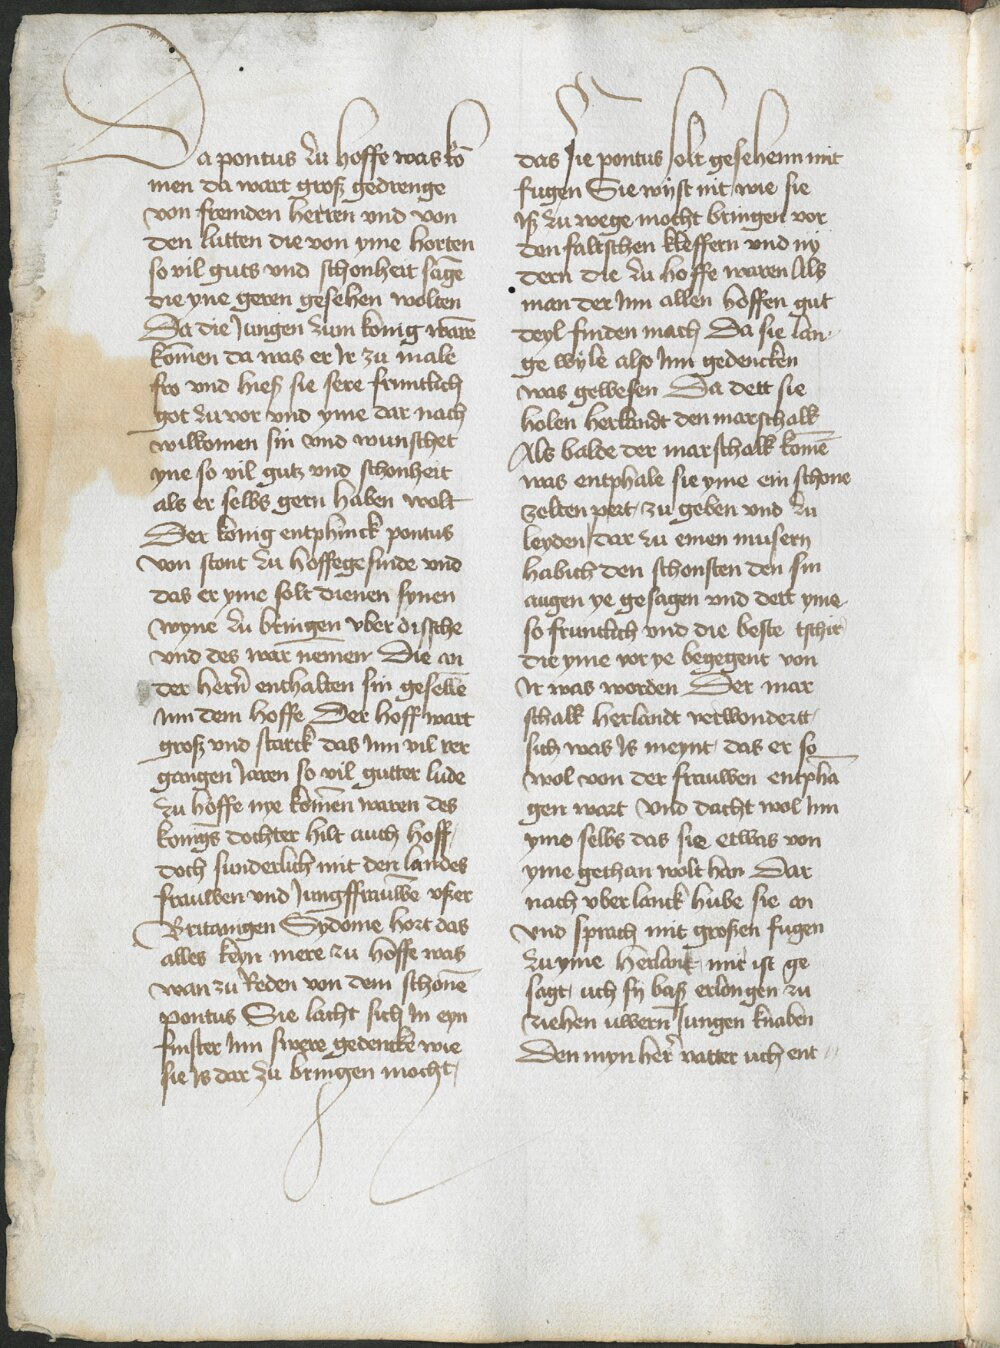 Da pontus zu hoffe was kō
men da wart groß gedrenge
von fremden herren vnd von
den lutten die von yme horten
so vil guts vnd schonheit sagē
die yne geren gesehen wolten
Da die Jungen zum konig warē
komen da was er Ir zu male
fro vnd hieß sie sere fruntlich
got zu vor vnd yme dar nach
wilkomen sin vnd wunschet
yne so vil gutz vnd schonheit
als er selbs gern haben wolt
Der konig entphinck pontus
von stont zu hoffegesinde vnd
das er yme solt dienen synen
wyne zu bringen vber dissche
vnd des war nemen Die an
der hern̄ enthalten sin gesellē
Inn dem hoffe Der hoff wart
groß vnd starck das Inn vil ver
gangen Jaren so vil gutter lude
zu hoffe nye komen waren des
konigs dochter hilt auch hoff
doch sunderlich mit den landes
frauwen vnd Jungffrauwē vßer
Britanigen Sydonie hort das
alles keyn mere zu hoffe was
wan zu Reden von dem schonē
pontus Sie lacht sich In eyn
finster Inn swere gedencke wie
sie Is dar zu bringen mocht
das sie pontus solt gesehenn mit
fugen Sie wijst nit wie sie
Iß zu wege mocht bringen vor
den faltschen kleffern vnd nÿ
dern die zu hoffe waren Als
man der Inn allen hoffen gut
teyl finden mach Da sie lan
ge wyle also Inn gedencken
was gewesen Da dett sie
holen herlandt den marschalk
Als balde der marschalk komē
was entphale sie yme ein schone
zelten pert zu geben vnd zu
leyden dar zu einen musern
habich den schonsten den sin
augen ye gesagen vnd dett yme
so fruntlich vnd die beste tschir
die yme vor ye begegent von
Ir was worden Der mar
schalk herlandt verwondertt
sich was Is meynt das er so
wol von der frauwen entphā
gen wart Vnd dacht wol Inn
yme selbs das sie etwas von
yme gethan wolt han Dar
nach vber lanck hube sie an
vnd sprach mit großen fugen
zu yme Herlant mir ist ge
sagt uch sÿ baß erlongen zu
ziehen uwern Jungen knaben
Den myn her vatter uch ent